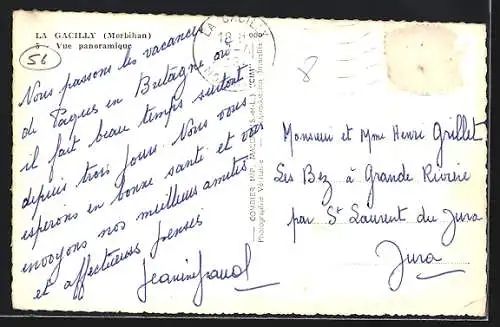 LA GACILLY (Morbihan)
5 - Vue panoramique
56
LA GACILLY
18 H
8
Nous passons les vacances
de Pâques en Bretagne où
il fait beau temps surtout
depuis trois jours. Nous vous
espérons en bonne santé et vous
envoyons nos meilleures amitiés
et affectueuses pensées
Jeanine
COMBIER IMP. MACON (S.-et-L.) "CIM"
Photographie Véritable - Reproduction Interdite
Monsieur et Mme Henri Grillet
Les Bez à Grande Rivière
par St Laurent du Jura
Jura